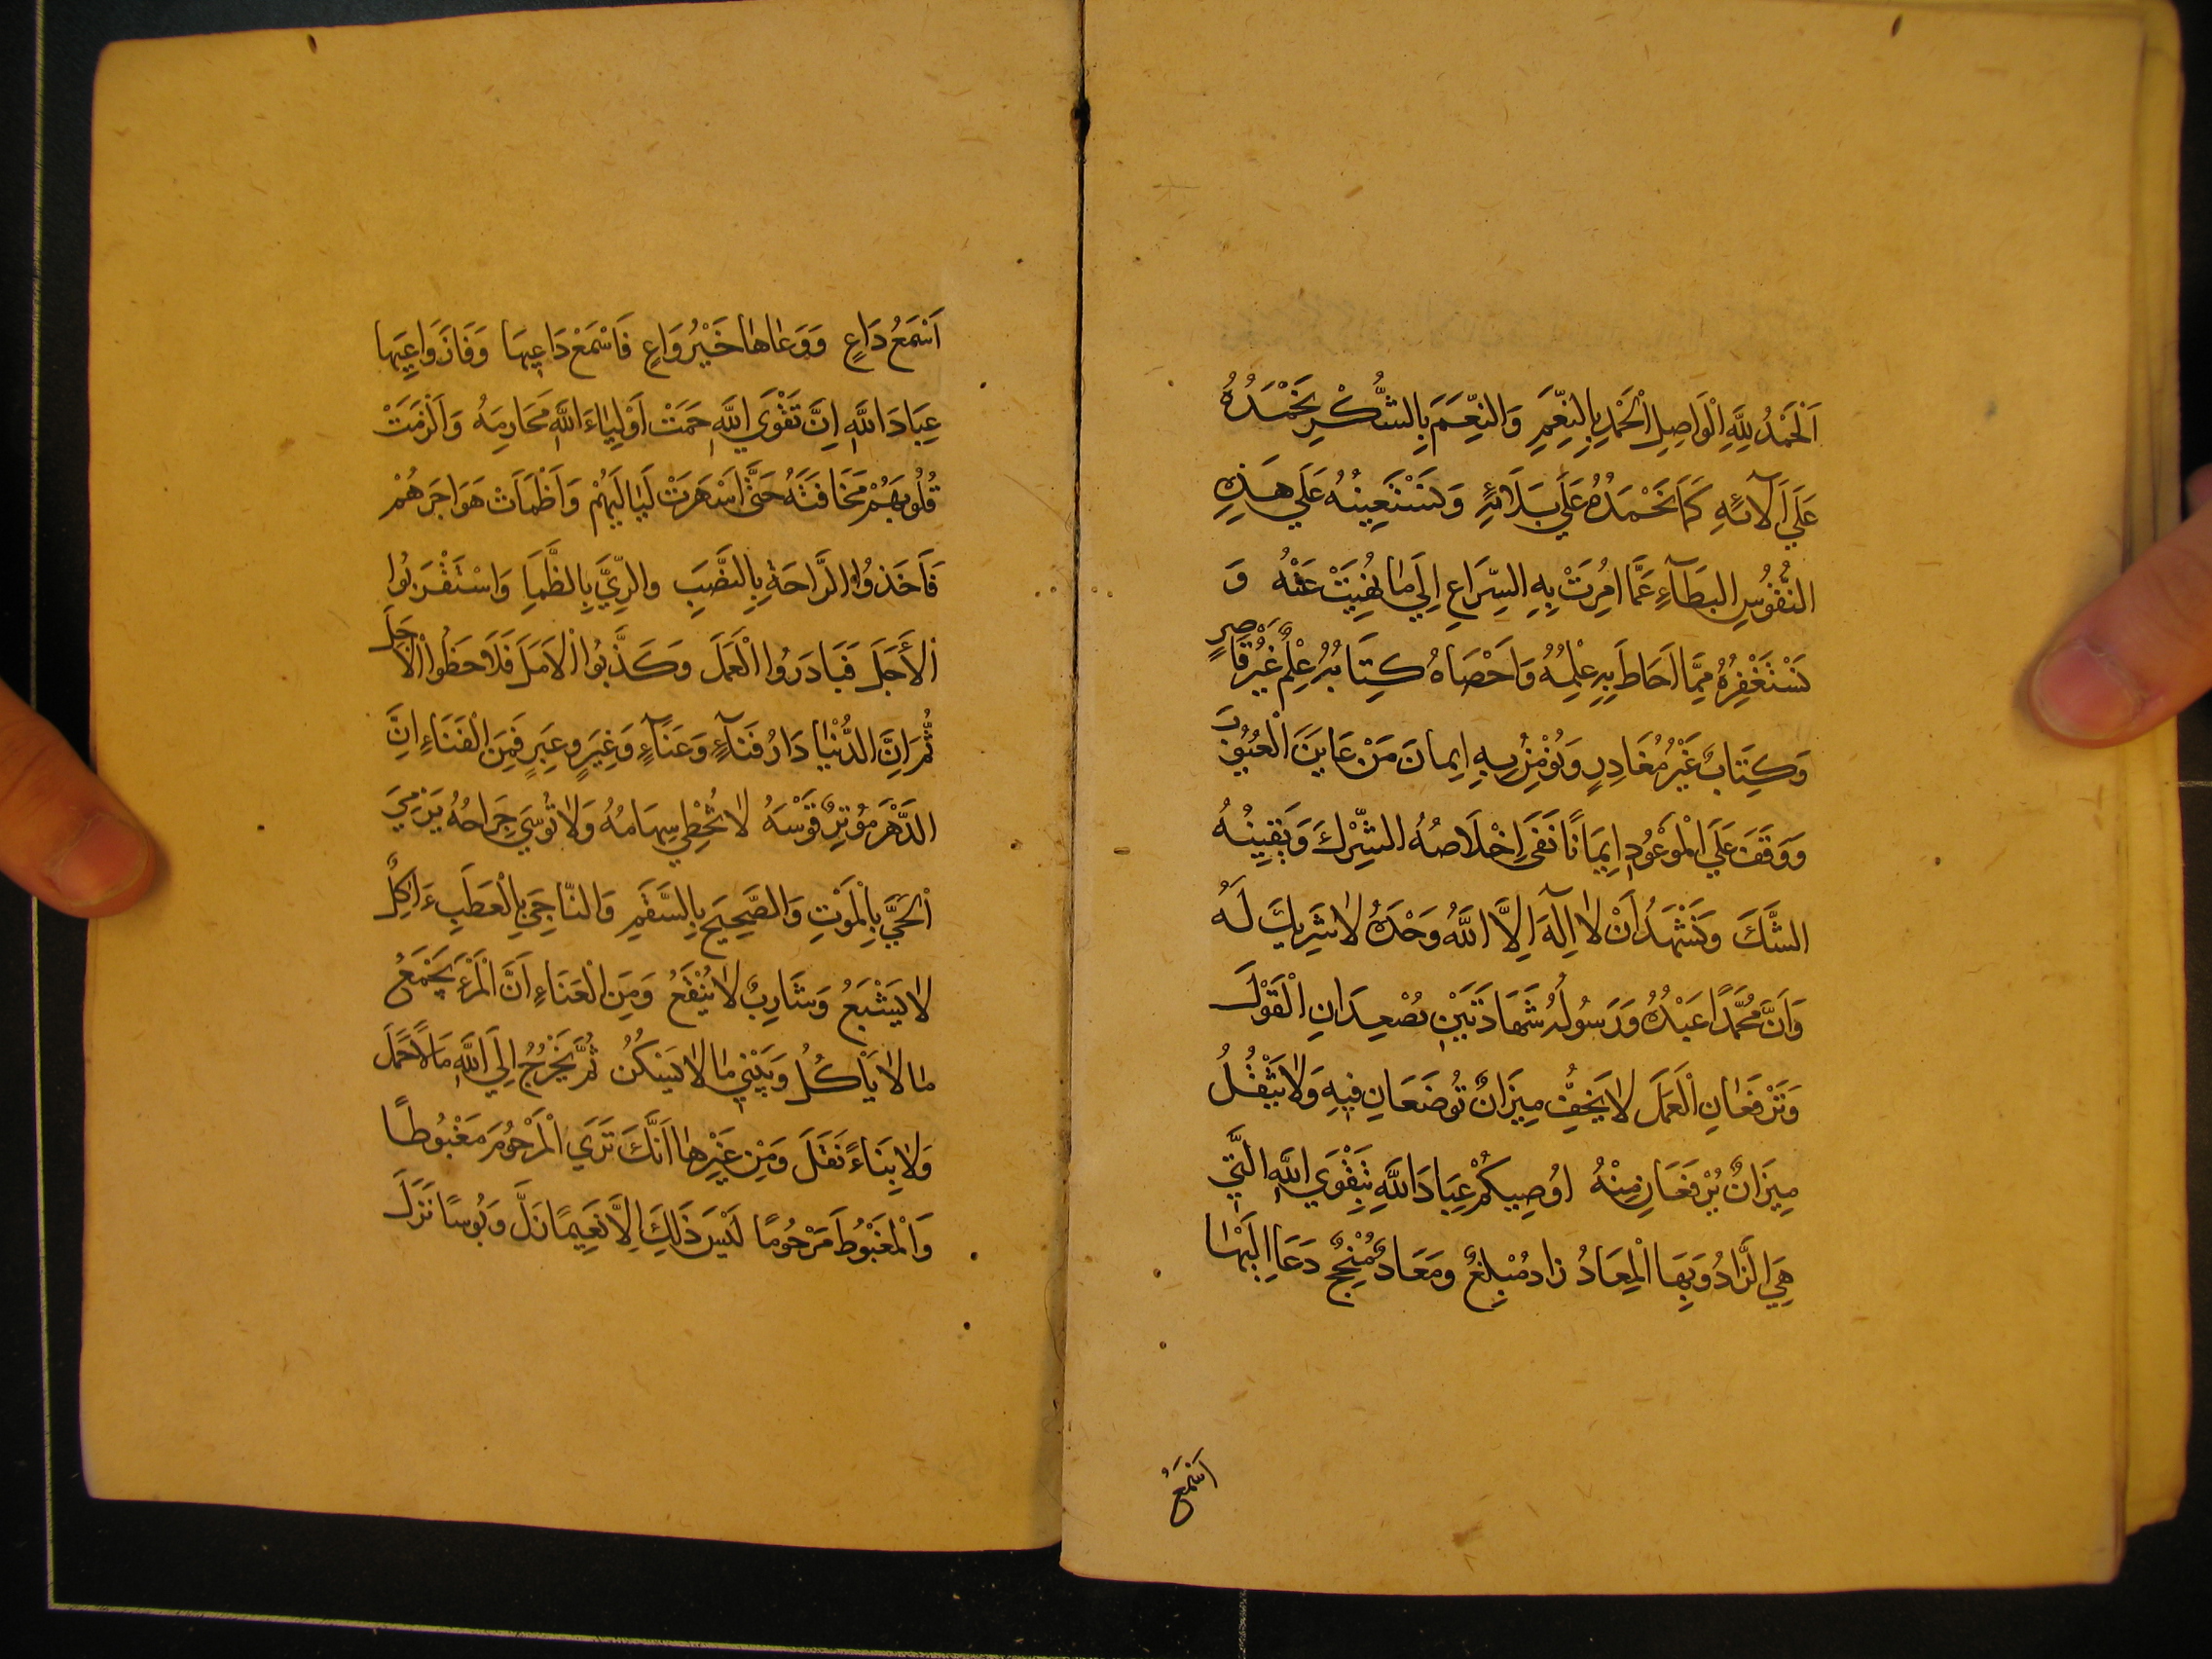 اَلْحَمْدُ لِلّٰهِ الْوَاصِلِ الْحَمْدِ بِالنِّعَمِ وَالنِّعَمَ بِالشُّكْرِ نَحْمَدُهُ
عَلَي اَلَآئِهِ كَمَا نَحْمَدُهُ عَلَي بَلَائِهِ وَنَسْتَعِينُهُ عَلَي هَذِهِ
النُّفُوُسِ البَطَآءِ عَمَّا اُمِرَتْ بِهِ السِّرَاعِ اِلَي مَا نُهِيَتْ عَنْهُ وَ
نَسْتَغْفِرُهُ مِمَّا اَحَاطَ بِهِ عِلْمُهُ وَاَحْصَاهُ كِتَابُهُ عِلْمٌ غَيْرُ قَاصِرٍ
وَكِتَابٌ غَيْرُ مُغَادِرٍ وَنُؤْمِنُ بِهِ اِيمانَ مَنْ عَايَنَ الْغُيُوُبَ
وَوَقَفَ عَلَي الْمَوْعُوُدِ اِيمَانًا نَفَي اِخْلَاصُهُ الشِّرْكَ وَيَقِينُهُ
الشَّكَ وَنَشْهَدُ اَنْ لَا اِلَهَ اِلَّا اللّٰهُ وَحْدَهُ لَا شَرِيكَ لَهُ
وَاَنَّ مُحَمَّدًا عَبْدُهُ وَرَسُولُهُ شَهَادَتَيْنِ تُصْعِدَانِ الْقَوْلَ
وَتَرْفَعَانِ الْعَمَلَ لَا يَخِفُّ مِيزَانٌ تُوضَعَانِ فِيهِ وَلَا يَثْقُلُ
مِيزَانٌ تُرْفَعَانِ مِنْهُ اُوصِيكُمْ عِبَادَ اللّٰهِ بِتَقْوَي اللّٰهِ الَّتِي
هِيَ الزَّادُ وَبِهَا الْمَعَادُ زَاد مُبْلِغٌ وَمَعَادٌ مُنْجِحٌ دَعَا اِلَيْهَا
اَسْمَعُ
اَسْمَعُ دَاعٍ وَوَعَاهَا خَيْرُ وَاعٍ فَاَسْمَعَ دَاعِيهَا وَفَازَ وَاعِيهَا
عِبَادَ اللّٰهِ اِنَّ تَقْوَي اللّٰهِ حَمَتْ اَوْلِيَاءَ اللّٰهِ مَحَارِمَهُ وَاَلْزَمَتْ
قُلُوبَهُمْ مَخَافَتَهُ حَتَّي اَسْهَرَتْ لَيَالِيَهُمْ وَاَظْمَاَتْ هَوَاجِرَهُمْ
فَاَخَذوُا الرَّاحَةَ بِالنَّصَبِ والرِّيَّ بِالظَّمَاِ وَاسْتَقْرَبُوا
الْأَجَلَ فَبَادَرُوا الْعَمَلَ وَكَذَّبُوا الْاَمَلَ فَلَاحَظُوا الْاَجَلَ
ثُمَّ اِنَّ الدُّنْيَا دَارُ فَنَآءٍ وَعَنَآءٍ وَغِيَرٍ وعِبَرٍ فَمِنَ الْفَنَاءِ اَنَّ
الدَّهْرَ مُوتِرٌ قَوْسَهُ لَا تُخْطِي سِهَامُهُ وَلَا تُوسَي جِرَاحُهُ يَرْمِيَ
الْحَيَّ بِالْمَوْتِ وَالصَّحِيحَ بِالسَّقَمِ وَالنَّاجِيَ بِالْعَطَبِ ءَاكِلٌ
لَا يَشْبَعُ وَشَارِبٌ لَا يَنْقَعُ وَمِنَ الْعَنَاءِ اَنَّ الْمَرْءَ يَجْمَعُ
مَا لَا يَاْكُلُ وَيَبْنِي مَا لَا يَسْكُنُ ثُمَّ يَخْرُجُ اِلَي اللّٰهِ مَالًا حَمَلَ
وَلَا بِنَاءً نَقَلَ وَمِنْ غَيْرِهَا اَنَّكَ تَرَي الْمَرْحُومَ مَغْبُوطًا
وَالْمَغْبُوطَ مَرْحُومًا لَيْسَ ذَلِكَ اِلَّا نَعِيمًا زَلَّ وَبُوسًا نَزَلَ